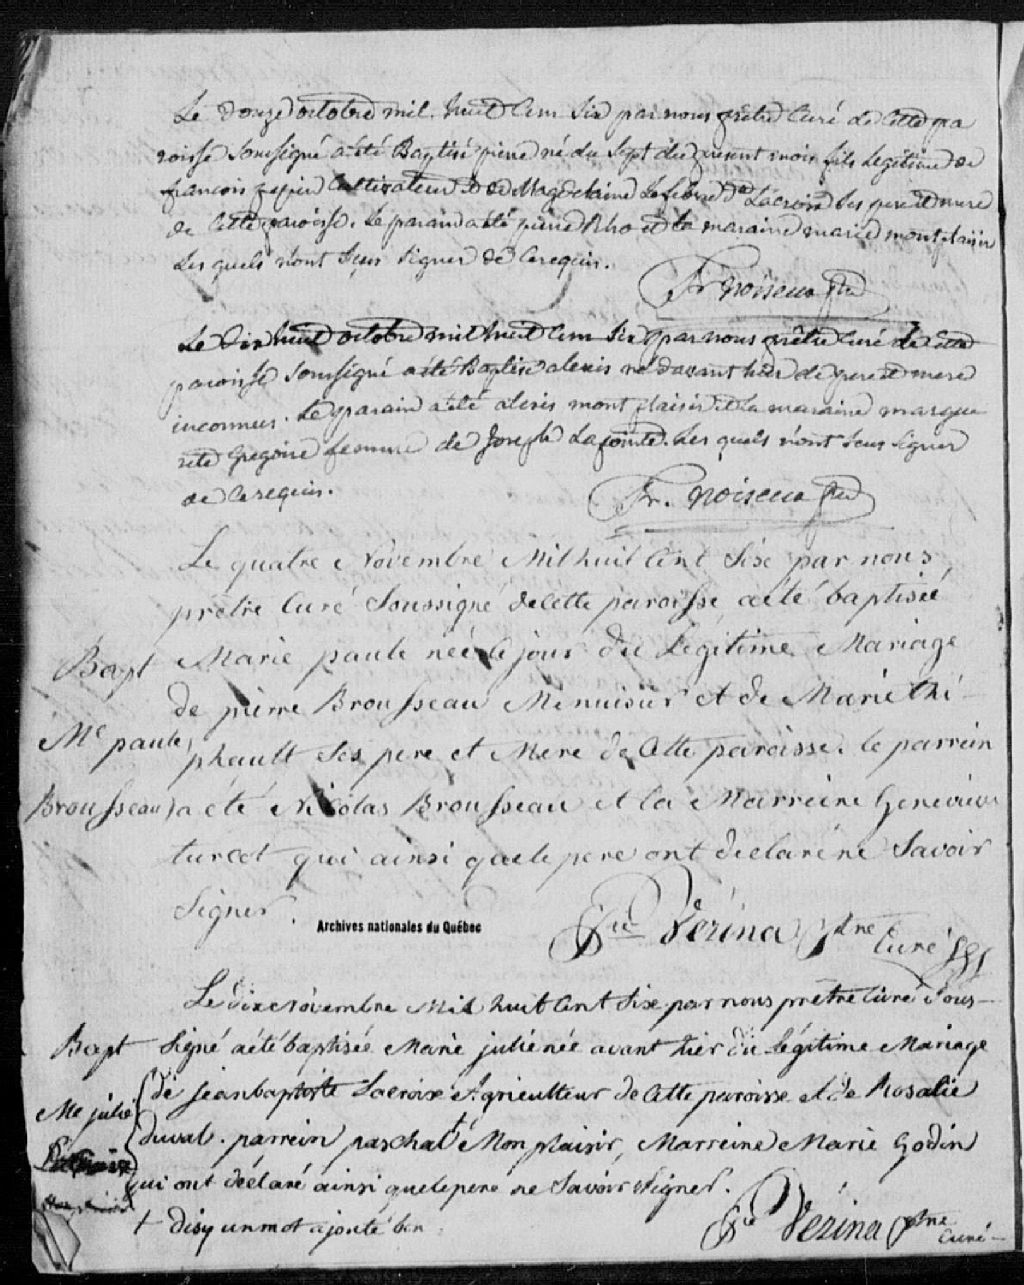 Le douze octobre mil huit cem Six par nous prêtre Curé de Cette pa
roisse Soussigné a été Baptisé pierre né du Sept du present mois fils Legitime de
francois papin Cultivateur & de Magdelaine Lefebvre de Lacroix Ses pere et mere
de Cette paroisse. Le parain a été pierre Rho et la maraine marie mont plaisir
Les quels n'ont Sçus Signer de Cerequis.
Fr Noiseux ptre
Le Dix huit octobre mil huit Cem Six par nous prêtre Curé de Cette
paroisse Soussigné a été Baptisé alexis né davant hier de pere et mere
inconnus. Le parain a été alexis mont plaisir et la maraine margue
rite Gregoire femme de Joseph Lapointe. Les quels n'ont Sçus Signer
de Cerequis.
Fr. Noiseux ptre
Le quatre Novembre Mil huit Cent Six par nous
prêtre Curé Soussigné de Cette paroisse a été baptisée
Bapt Marie paule née le jour du Légitime Mariage
de pierre Brousseau Menuisier et de Marie thi-
Me paule phault Ses pere et Mere de Cette paroisse. le parrein
Brousseau a été Nicolas Brousseau et la Marreine Genevieve
turcot qui ainsi que le pere ont déclaré ne Savoir
Signer.
Archives nationales du Québec
Vezina ptre Curé
Le dix novembre Mil huit Cent Six par nous prêtre Curé Sous-
Bapt Signé a été baptisée Marie julie née avant hier du légitime Mariage
de jean baptiste Lacroix Agriculteur de Cette paroisse et de Rosalie
Me julie duval. parrein paschal † Mon plaisir, Marreine Marie Godin
qui ont déclaré ainsi que le pere ne Savoir Signer.
† disy un mot ajouté bon
Vezina ptre
Curé